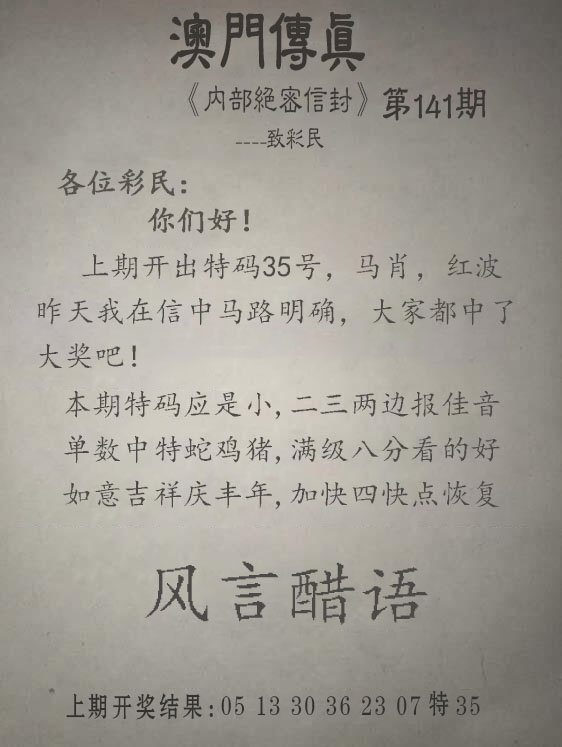 澳門傳真
《内部絕密信封》第141期
----致彩民
各位彩民：
你们好！
上期开出特码35号，马肖，红波
昨天我在信中马路明确，大家都中了
大奖吧！
本期特码应是小,二三两边报佳音
单数中特蛇鸡猪,满级八分看的好
如意吉祥庆丰年,加快四快点恢复
风言醋语
上期开奖结果:05 13 30 36 23 07特35